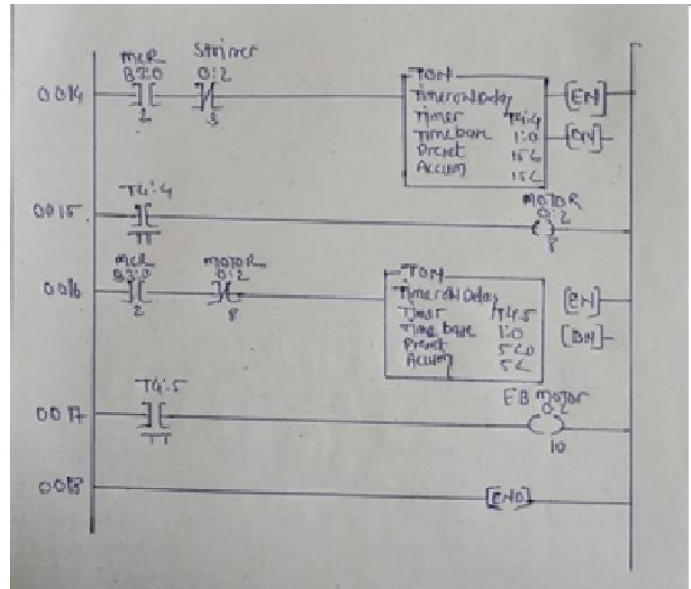 MCR
B3:0
2
O:2
3
0014
TON
Timer ON Delay
Timer T4:4
Time base 1:0
Preset 15<
Accum 15<
(EN)
(DN)
0015
T4:4
TT
MOTOR
O:2
8
0016
MCR
B3:0
2
MOTOR
O:2
8
TON
Timer ON Delay
Timer T4:5
Time base 1:0
Preset
Accum 5<
(EN)
(DN)
0017
T4:5
TT
EB MOTOR
O:2
10
0018
(END)